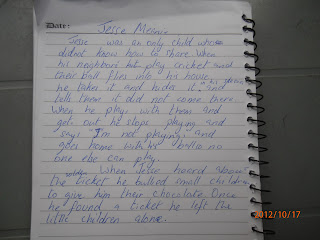 Date:
Jesse Meimus
Jesse was an only child whose
didnot know how to share. When
his neighbors play cricket and
their ball flies into his house
he takes it and hides it and
tells them it did not come there
When he plays with them and
gets out he stops playing and
says I'm not playing and
goes home with his so no
one else can play.
When Jesse heard about
the ticket he bullied small children
to give him their chocolate Once
he found a ticket he left the
little children alone.
2012/10/17